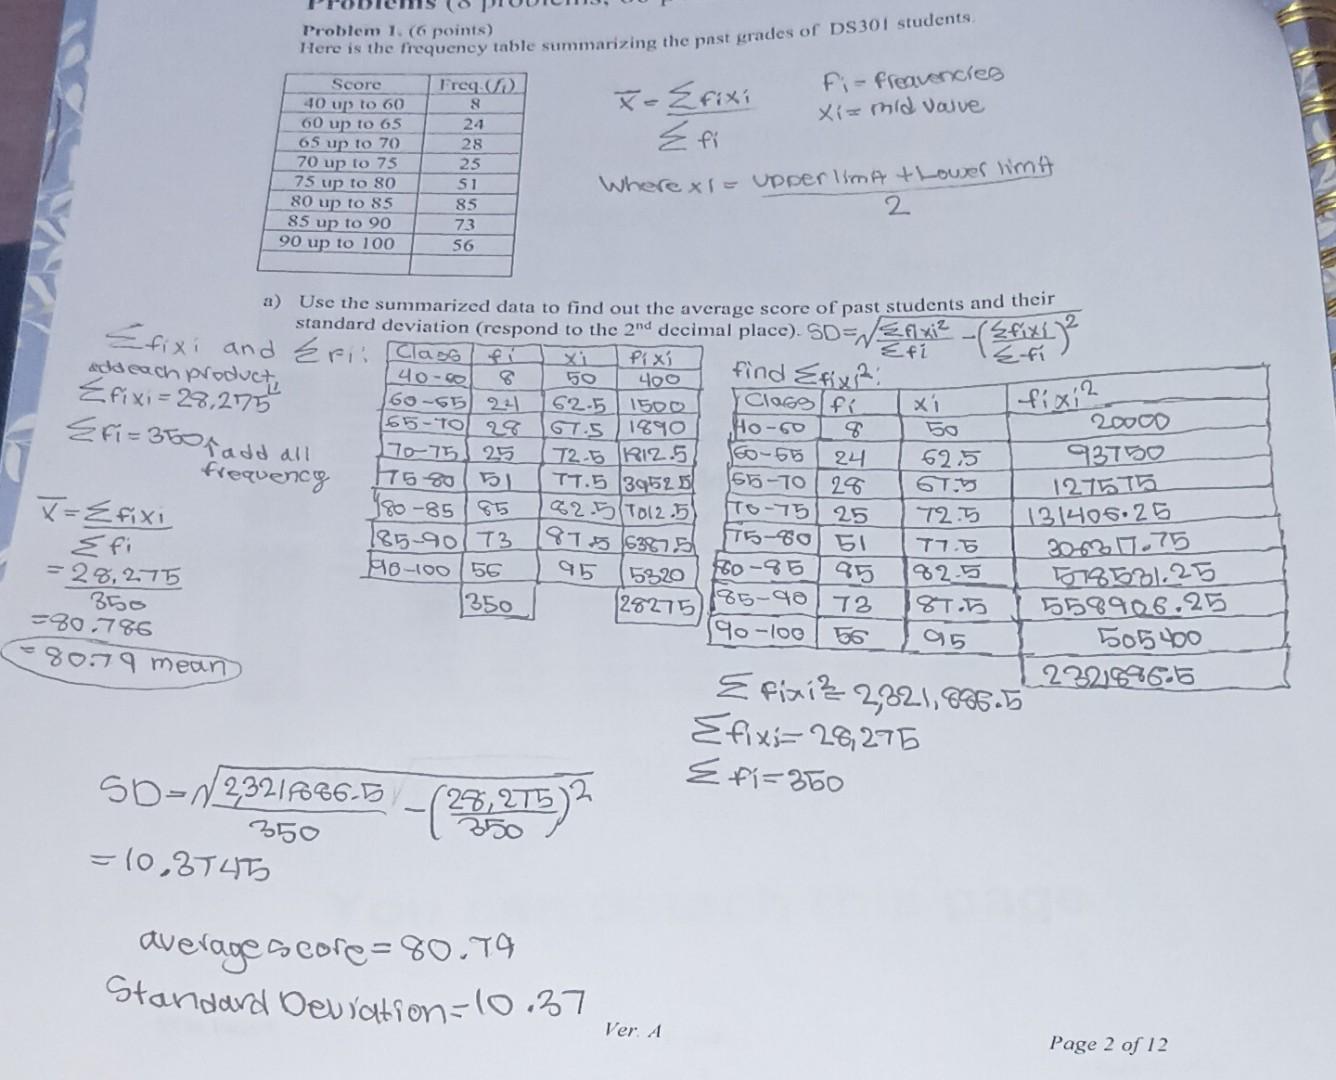 Problem 1. (6 points)
Here is the frequency table summarizing the past grades of DS301 students.
Score Freq.(fi)
40 up to 60 8
60 up to 65 24
65 up to 70 28
70 up to 75 25
75 up to 80 51
80 up to 85 85
85 up to 90 73
90 up to 100 56
x̄ = Σfixi
Σfi
fi - frequencies
xi = mid value
Where xi = upper limit + Lower limit
2
a) Use the summarized data to find out the average score of past students and their
standard deviation (respond to the 2nd decimal place). SD=√Σfixi²/Σfi -(Σfixi/Σfi)²
Σfixi and Σfi:
add each product
Σfixi = 28,275
Σfi = 350 add all
frequency
x̄ = Σfixi
Σfi
= 28,275
350
= 80.786
= 80.79 mean
Class fi xi fixi
40-60 8 50 400
60-65 24 62.5 1500
65-70 28 67.5 1890
70-75 25 72.5 1812.5
75-80 51 77.5 3952.5
80-85 85 82.5 7012.5
85-90 73 87.5 6387.5
90-100 56 95 5320
350 28275
find Σfixi²:
Class fi xi fixi²
40-60 8 50 20000
60-65 24 62.5 93750
65-70 28 67.5 127575
70-75 25 72.5 131406.25
75-80 51 77.5
80-85 85 82.5 578531.25
85-90 73 87.5 558906.25
90-100 56 95 505400
2321886.5
Σfixi² = 2,321,886.5
Σfixi = 28,275
Σfi = 350
SD = √2,321,886.5/350 - (28,275/350)²
= 10.3745
average score = 80.79
Standard Deviation = 10.37
Ver. A
Page 2 of 12